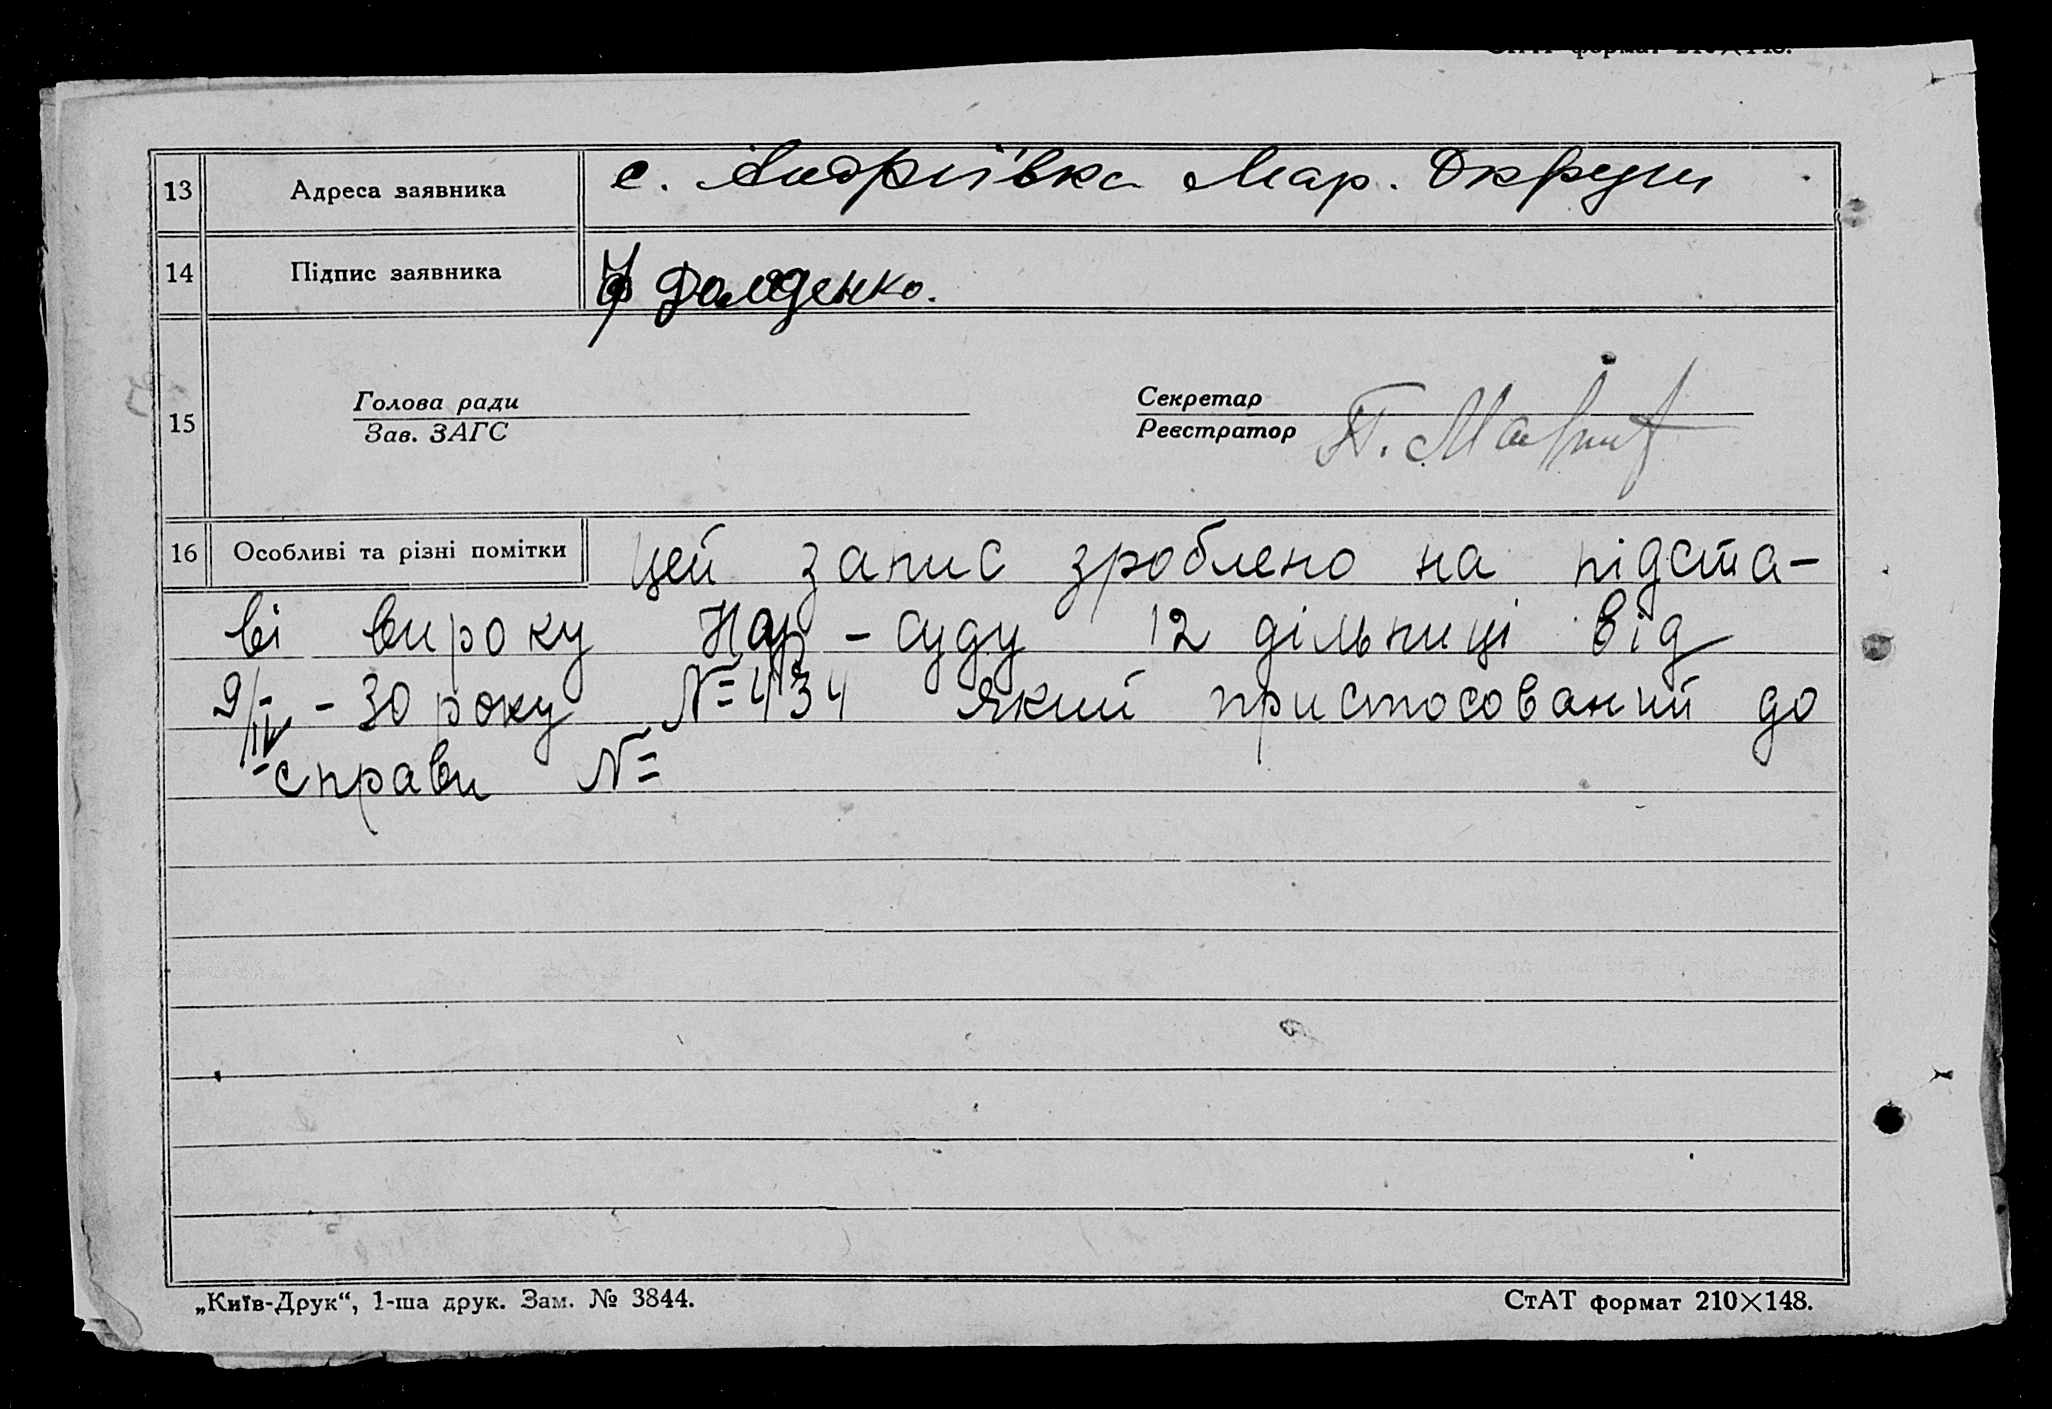 13 Адреса заявника с. Андріївка Мар. Округи
14 Підпис заявника
15
Голова ради
Зав. ЗАГС
Секретар
Реєстратор
16 Особливі та різні помітки Цей запис зроблено на підста-
ві вироку Нар-суду 12 дільниці від
9/IV - 30 року №434 який пристосований до
справи №
„Київ-Друк“, 1-ша друк. Зам. № 3844.
СтАТ формат 210×148.